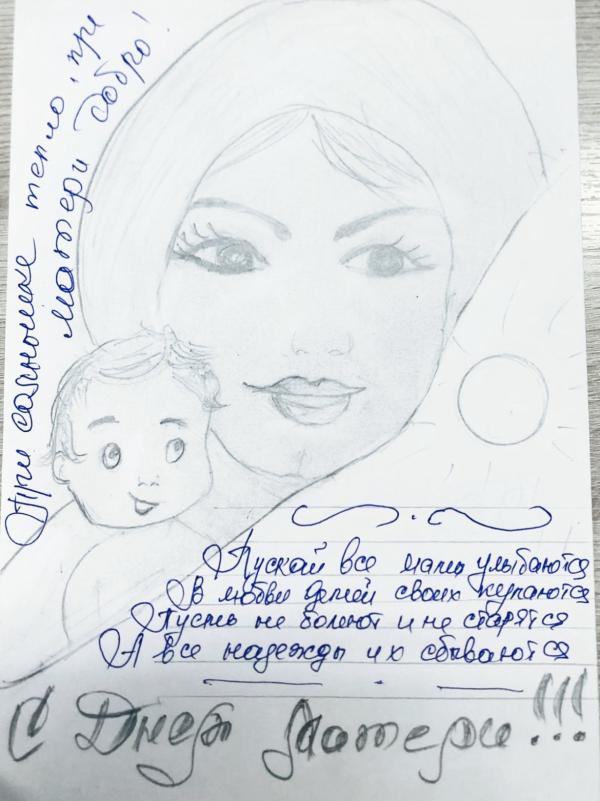 При солнышке тепло, при
матери добро!
Пускай все мамы улыбаются
В любви детей своих купаются
Пусть не болеют и не старятся
А все надежды их сбываются
С Днем Матери!!!